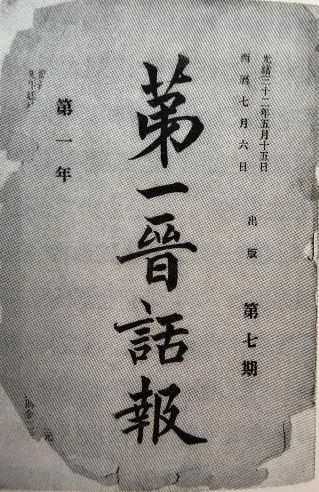 光緒三十二年五月十五日
西曆七月六日
出版
第七期
第一晉話報
第一年